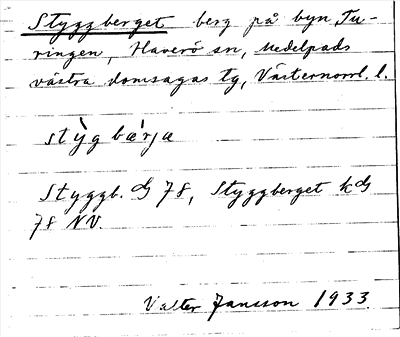 Styggberget berg på byn Tu-
ringen, Haverö sn, Medelpads
västra domsagas tg, Västernorrl. l.
stỳg bæ̀rja
Styggb. G 78, Styggberget kG
78 NV.
Valter Jansson 1933.